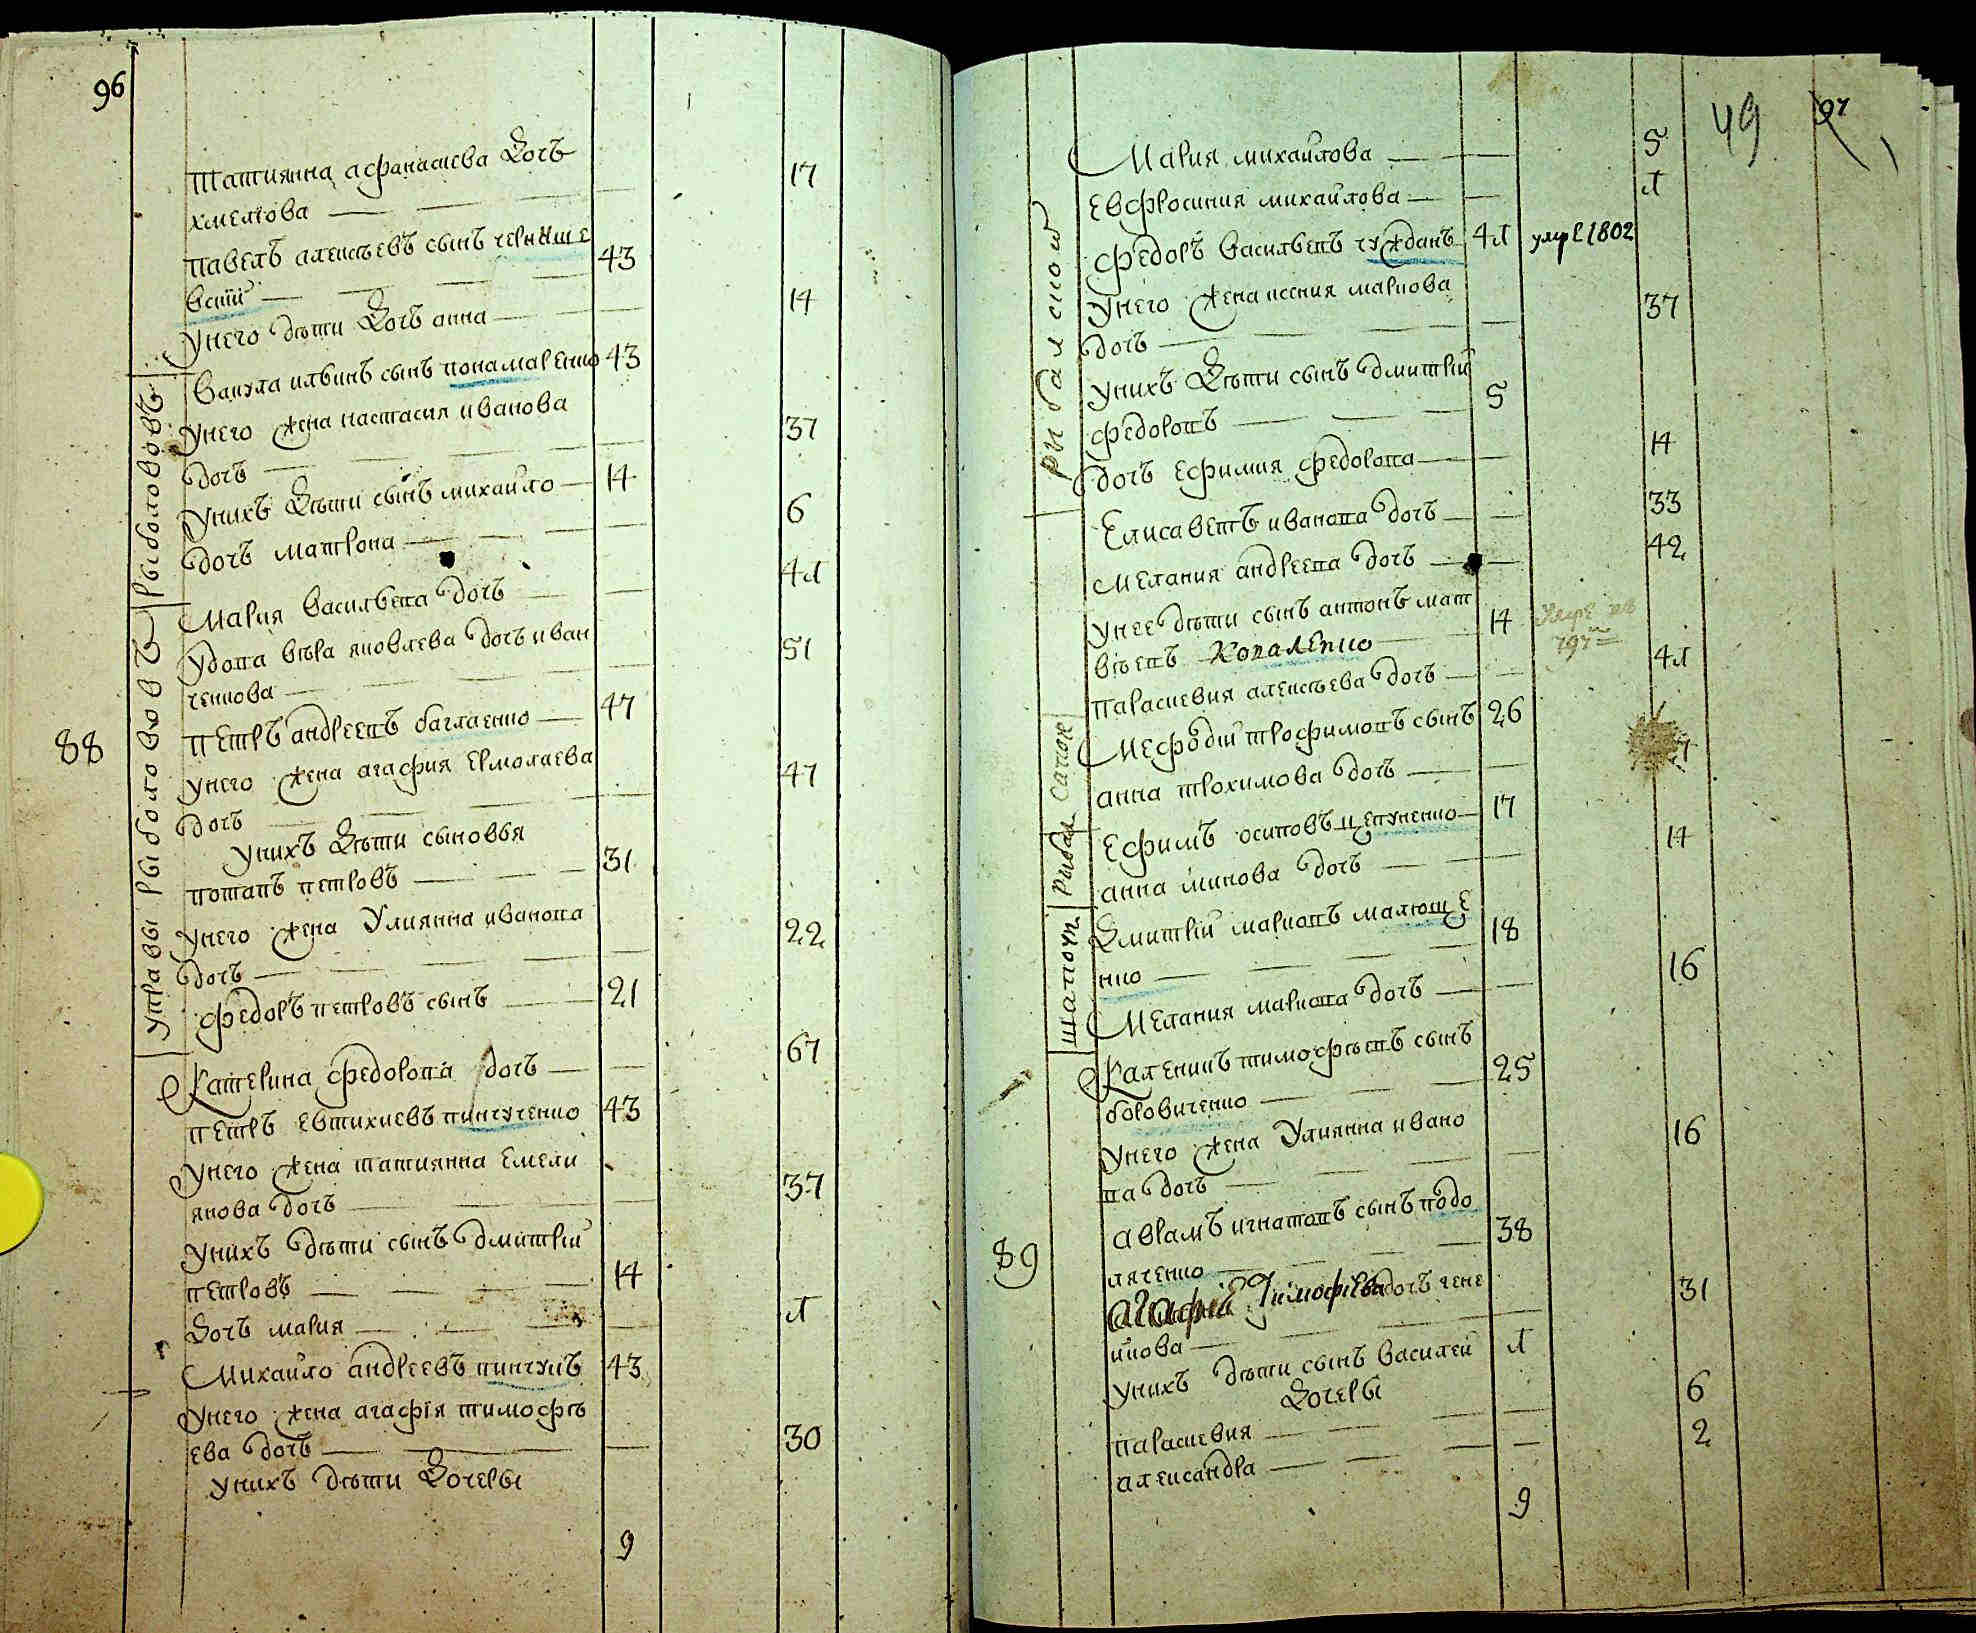 96
Татиянна афанасиева дочъ 17
хмелюва
Павелъ алексѣевъ сынъ черныше 43
вскій
Унего дѣти дочъ анна 14
Вакула илвинъ сынъ понамаренко 43
Унего жена настасия иванова
дочъ 37
Унихъ дѣти сынъ михайло 14
дочъ матрона 6
Мария василвева дочъ 4л
удова вѣра яковлева дочъ иван
ченкова 51
88
Петръ андреевъ баглаенко 47
Унего жена агафия ермолаева
дочъ 47
Унихъ дѣти сыновья
потапъ петровъ 31
Унего жена Улиянна иванова
дочъ 22
федоръ петровъ сынъ 21
Катерина федорова дочъ 67
Петръ евтихиевъ пинчученко 43
Унего жена татиянна емели
янова дочъ 37
Унихъ дѣти сынъ дмитрій
петровъ 14
дочъ мария л
Михайло андреевъ пинчукъ 43
Унего жена агафія тимофѣ
ева дочъ 30
Унихъ дѣти дочеры
9
рыболововъ
управы рыболововъ
49 97
Мария михайлова 5
Евфросиния михайлова л
федоръ василвевъ чужданъ 4л умре 1802
Унего жена ксения маркова
дочъ 37
Унихъ дѣти сынъ дмитрій
федоровъ 5
дочъ ефимия федорова 14
Елисаветъ иванова дочъ 33
Мелания андреева дочъ 42
Унее дѣти сынъ антонъ мат
вѣевъ Коваленко 14
Параскевия алексѣева дочъ 4л
Мефодій трофимовъ сынъ 26
анна трохимова дочъ
Ефимъ осиповъ цепуненко 17
анна минова дочъ 14
Дмитрій марковъ малюще
нко 18
Мелания маркова дочъ 16
Каленикъ тимофѣевъ сынъ
боровиченко 25
Унего жена Улиянна ивано
ва дочъ 16
89
аврамъ игнатовъ сынъ подо
ляченко 38
агафия Тимофѣева дочъ чене
йкова 31
Унихъ дѣти сынъ василей л
дочеры
параскевия 6
александра 2
9
рибалской
рибал
шапош